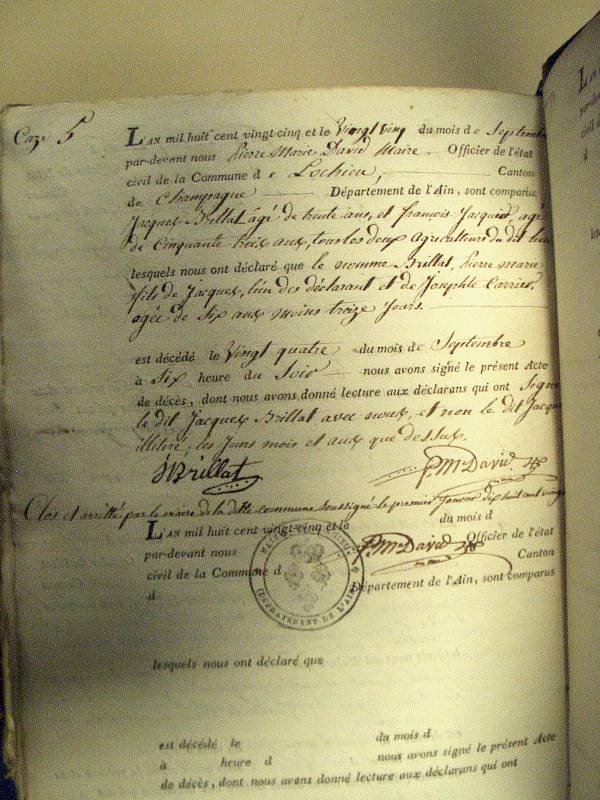 Caze 5
L'AN mil huit cent vingt-cinq et le vingt cinq du mois de Septembre
par-devant nous Pierre Marie David Maire Officier de l'état
civil de la Commune de Lochieu, Canton
de Champagne Département de l'Ain, sont comparus
Jacques Brillat agé de trente ans, et françois Jacquier, agé
de Cinquante huit ans, tous les deux agriculteurs du dit lieu
lesquels nous ont déclaré que le nommé Brillat, Pierre marie
fils de Jacques, l'un des déclarant et de Josephte Carrier,
agée de Six ans moins treize Jours.
est décédé le Vingt quatre du mois de Septembre
à Six heure du Soir nous avons signé le présent Acte
de décès, dont nous avons donné lecture aux déclarans qui ont Signé
le dit Jacques Brillat avec nous, et non le dit Jacquier
illétéré, les Jours mois et ans que dessus.
JBrillat P. M. David
Clos et arrêtté par le maire de la ditte commune soussigné le premier Janvier dix huit cent vingt
L'AN mil huit cent vingt-cinq et le du mois d
par-devant nous P. M. David Officier de l'état
civil de la Commune d Canton
d Département de l'Ain, sont comparus
DEPARTEMENT DE L'AIN
lesquels nous ont déclaré que
est décédé le du mois d
à heure d nous avons signé le présent Acte
de décès, dont nous avons donné lecture aux déclarans qui ont